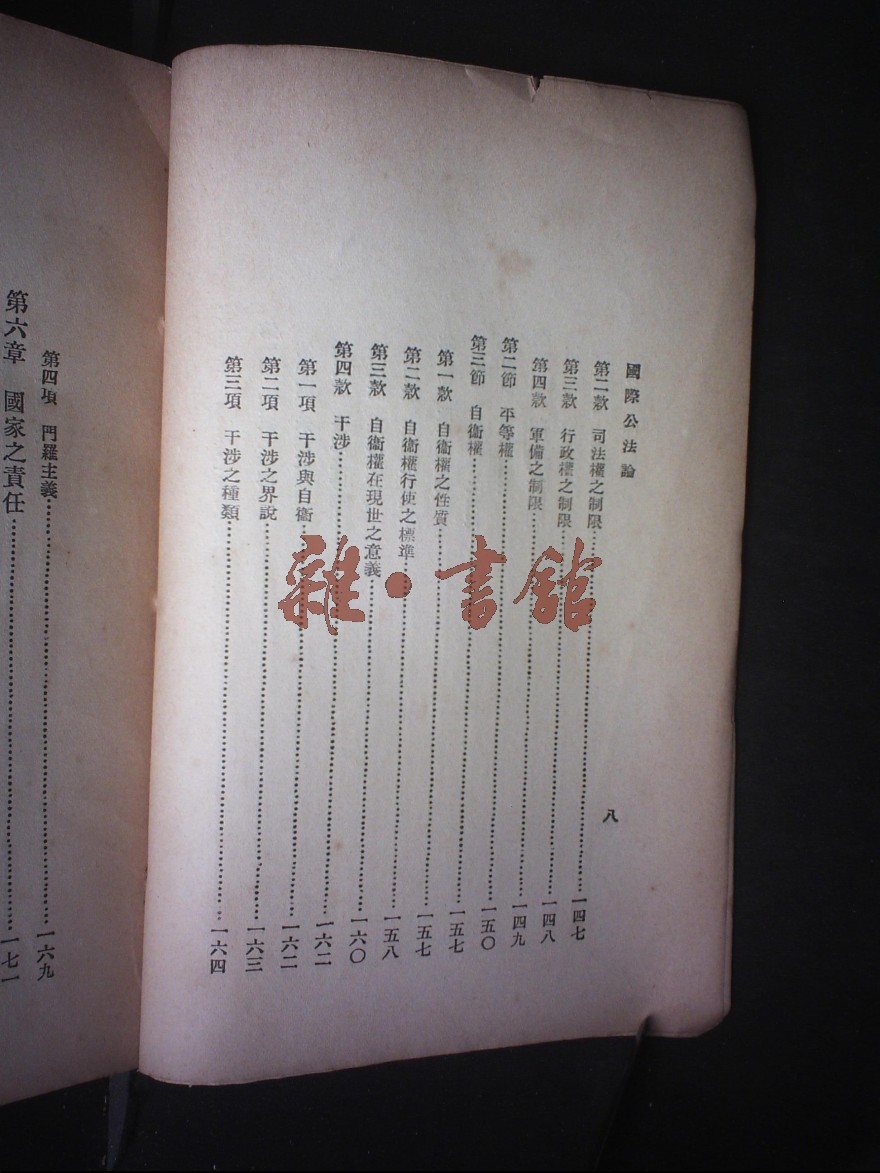 國際公法論
第二款 司法權之制限 一四七
第三款 行政權之制限 一四八
第四款 軍備之制限 一四九
第二節 平等權 一五〇
第三節 自衞權 一五七
第一款 自衞權之性質 一五七
第二款 自衞權行使之標準 一五八
第三款 自衞權在現世之意義 一六〇
第四款 干涉 一六二
第一項 干涉與自衞 一六二
第二項 干涉之界說 一六三
第三項 干涉之種類 一六四
八
第四項 門羅主義 一六九
第六章 國家之責任 一七一
雜·書館